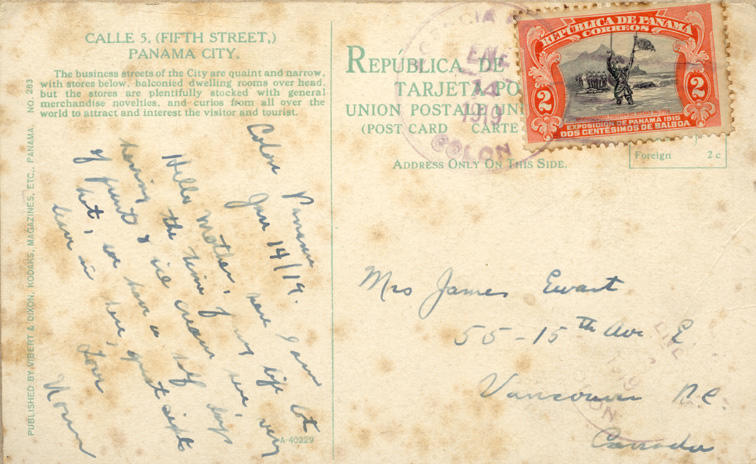 CALLE 5, (FIFTH STREET,)
PANAMA CITY.
The business streets of the City are quaint and narrow,
with stores below, balconied dwelling rooms over head,
but the stores are plentifully stocked with general
merchandise novelties, and curios from all over the
world to attract and interest the visitor and tourist.
PUBLISHED BY VIBERT & DIXON, KODAKS, MAGAZINES, ETC., PANAMA. NO. 283
Colon Panama
Jan 14/19.
Hello Mother, here I am
having the time of my life lots
of fruit & ice cream here, very
hot, we have a half days
leave in here, great sights
Love
Norm
A-40229
REPÚBLICA DE
TARJETA PO
UNION POSTALE UN
(POST CARD CARTE
ADDRESS ONLY ON THIS SIDE.
COLON
14
1919
REPÚBLICA DE PANAMA
CORREOS
2 2
EXPOSICION DE PANAMA 1915
DOS CENTÉSIMOS DE BALBOA
Foreign 2 c
Mrs James Ewart
55-15th Ave E.
Vancouver B.C.
Canada